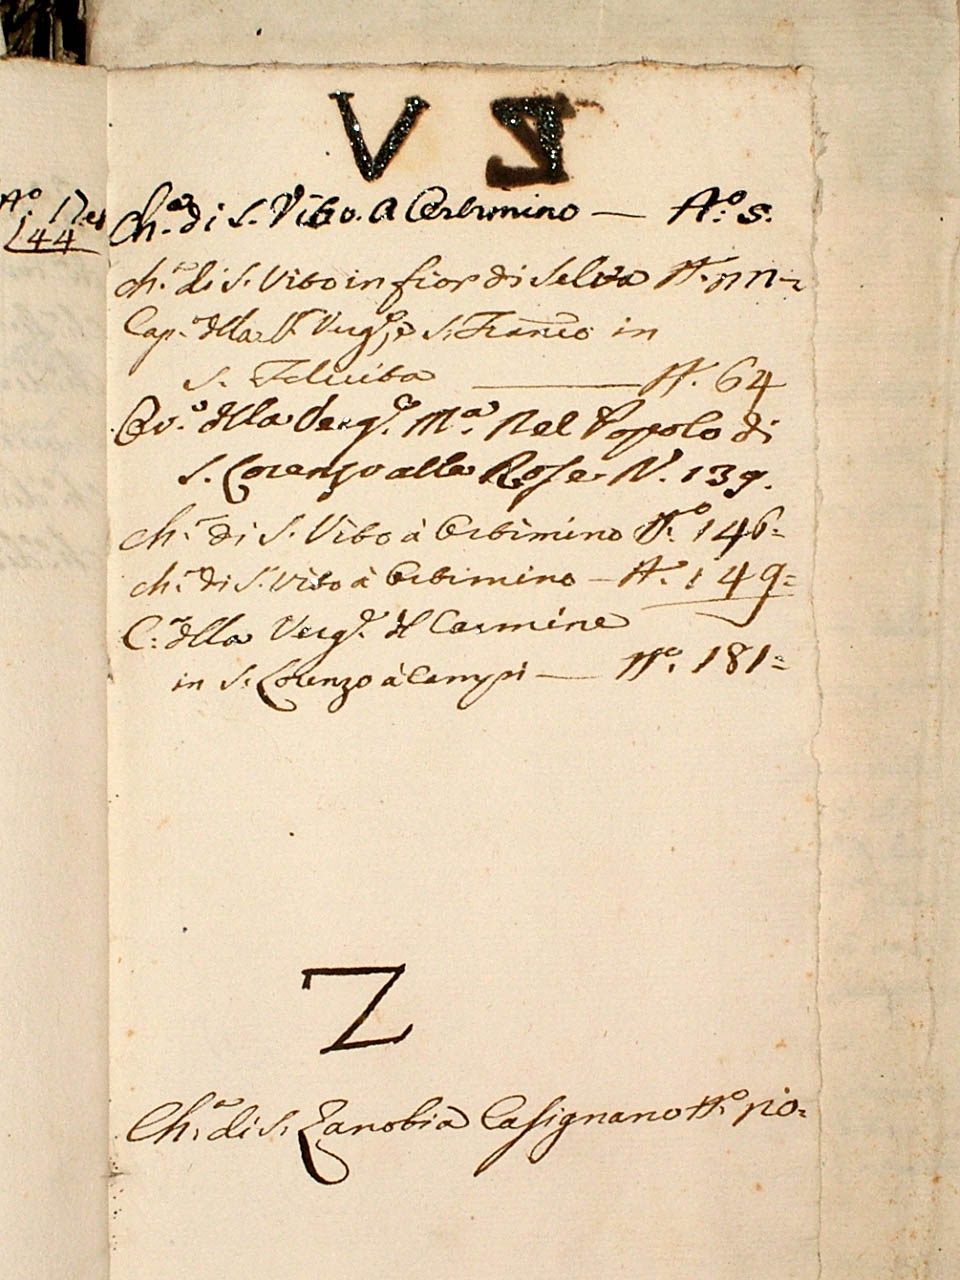 V Z
Ch.a di S. Vito a Certimino — N.o 5.
Ch.a di S. Vito in fior di Selva N.
Cap.a dlla S. Verg.e S. Franco in
S. Felicita — N. 64
dlla Verg.e M.a nel Popolo di
S. Lorenzo alle Rose N. 139.
Ch.a di S. Vito à Certimino N.o 146=
Ch.a di S. Vito à Certimino — N.o 149=
C.a dlla Verg.e dl Carmine
in S. Lorenzo à Campi — N.o 181=
Z
Ch.a di S. Zanobi a Casignano N.o